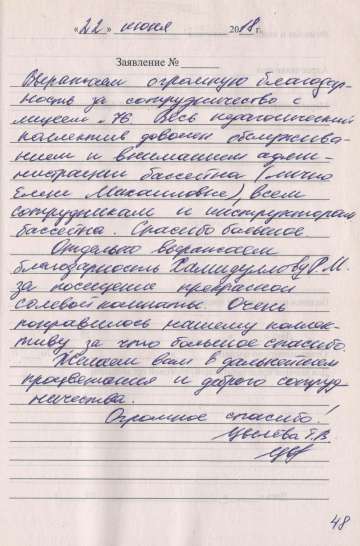 «22» июня 2018 г.
Заявление №
Выражаем огромную благодар-
ность за сотрудничество с
лицеем №76. Весь педагогический
коллектив доволен обслужива-
нием и вниманием адми-
нистрации бассейна (лично
Елене Михайловне), всем
сотрудникам и инструкторам
бассейна. Спасибо большое
Отдельно выражаем
благодарность Хамидуллову Р.М.
за посещение прекрасной
солевой комнаты. Очень
понравилось нашему коллек-
тиву за что большое спасибо.
Желаем вам в дальнейшем
процветания и доброго сотруд-
ничества.
Огромное спасибо!
Т.В.
48